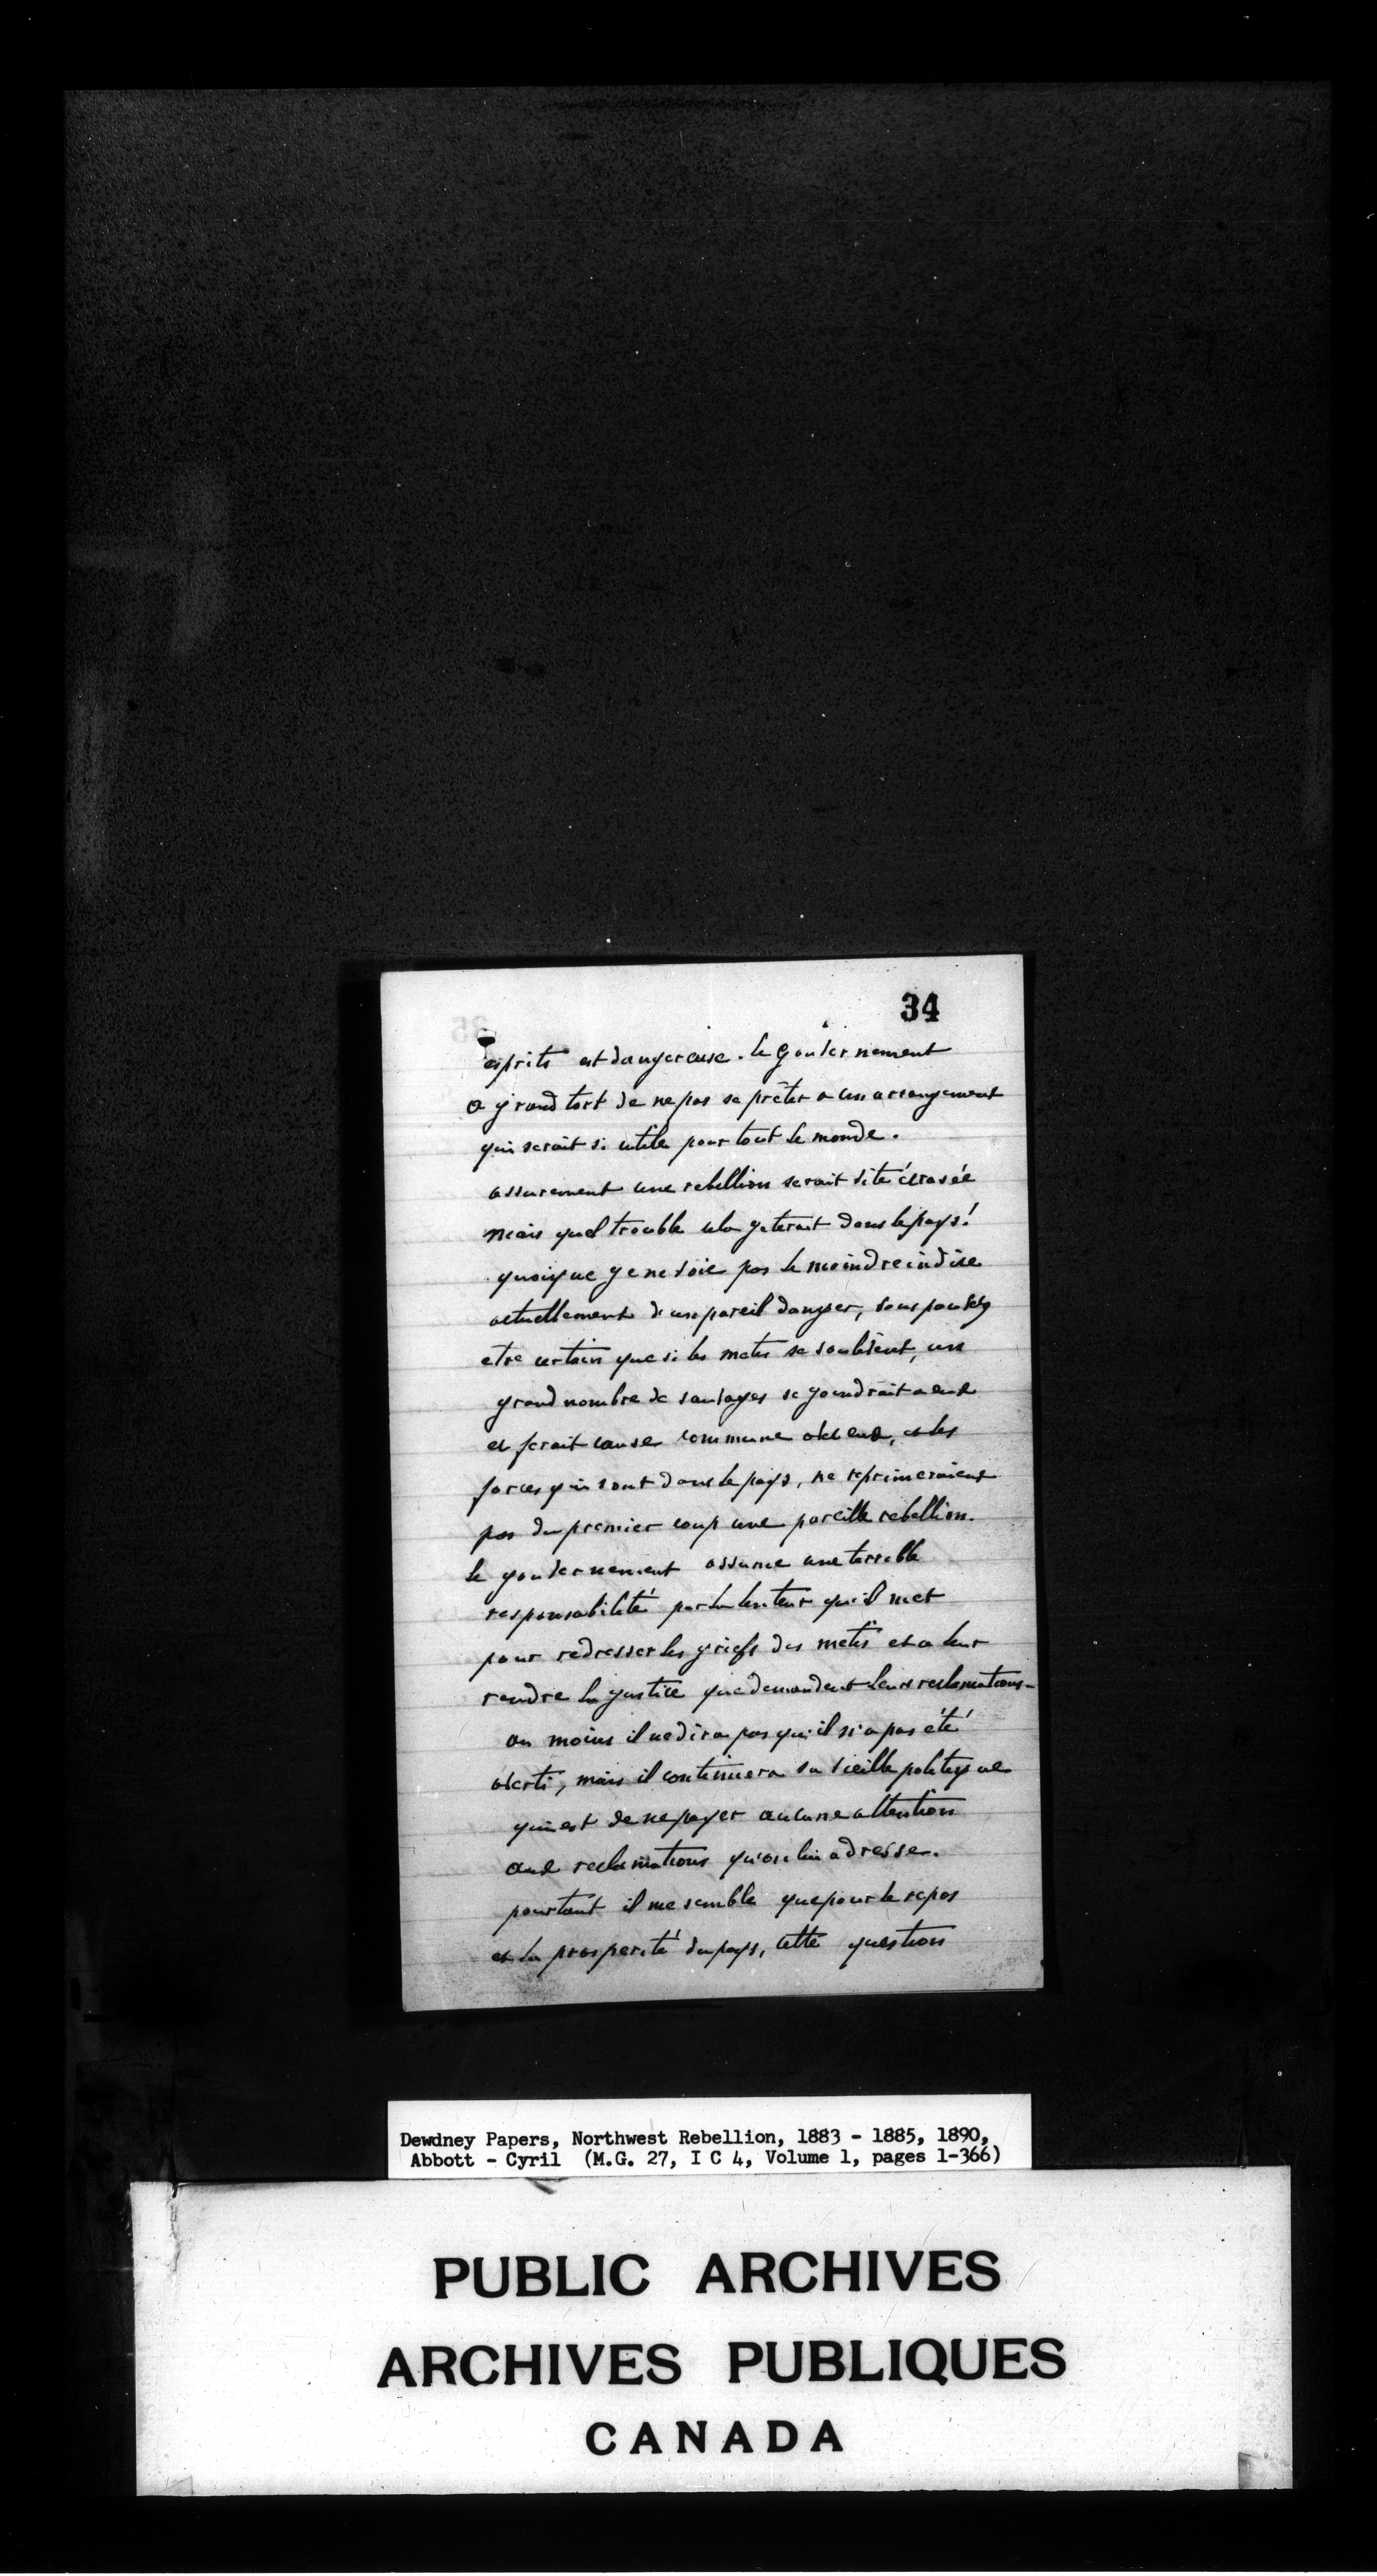 34
esprits est dangereuse. le Gouvernement
a grand tort de ne pas se prêter a un arrangement
qui serait si utile pour tout le monde.
assurement une rebellion serait vite écrasée
mais quel trouble cela jeterait dans le pays!
quoique je ne voie pas le moindre indice
actuellement d'un pareil danger, vous pouvez
etre certain que si les metis se soulevent, un
grand nombre de sauvages se joindrait a eux
et ferait cause commune avec eux, et les
forces qui sont dans le pays, ne reprimeraient
pas du premier coup une pareille rebellion.
le gouvernement assume une terrible
responsabilité par la lenteur qu'il met
pour redresser les griefs des metis et a leur
rendre la justice que demandent leurs reclamations-
au moins il ne dira pas qu'il n'a pas été
averti, mais il continuera sa vieille politique
qui est de ne payer aucune attention
aux reclamations qu'on lui adresse.
pourtant il me semble que pour le repos
et la prosperité du pays, cette question
Dewdney Papers, Northwest Rebellion, 1883 - 1885, 1890,
Abbott - Cyril (M.G. 27, I C 4, Volume 1, pages 1-366)
PUBLIC ARCHIVES
ARCHIVES PUBLIQUES
CANADA